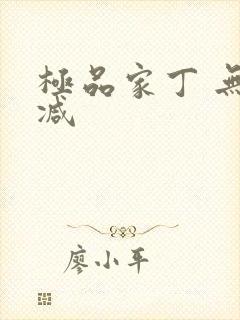 極品家丁 無
减
廖小平